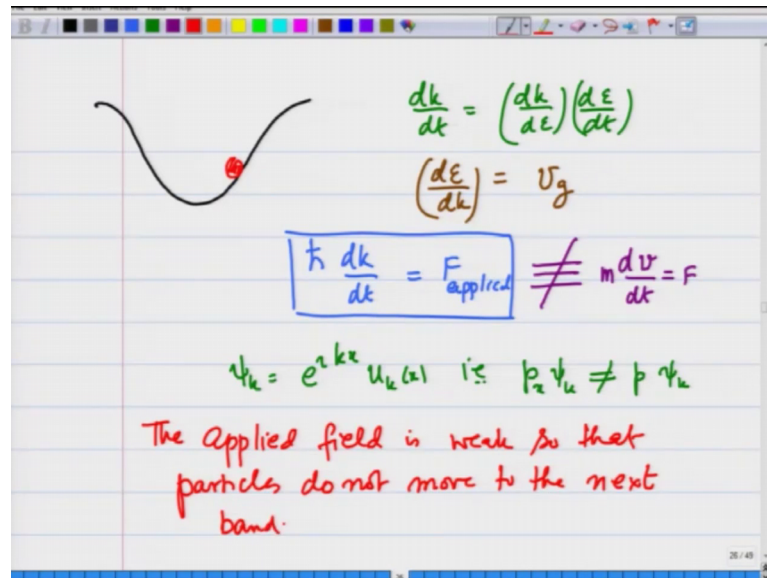 dk/dt = (dk/dε)(dε/dt)
(dε/dk) = v_g
ħ dk/dt = F_applied ≢ m dv/dt = F
ψ_k = e^{ikx} u_k(x) i.e. p_x ψ_k ≠ p ψ_k
The applied field is weak so that
particles do not move to the next
band.
26/49